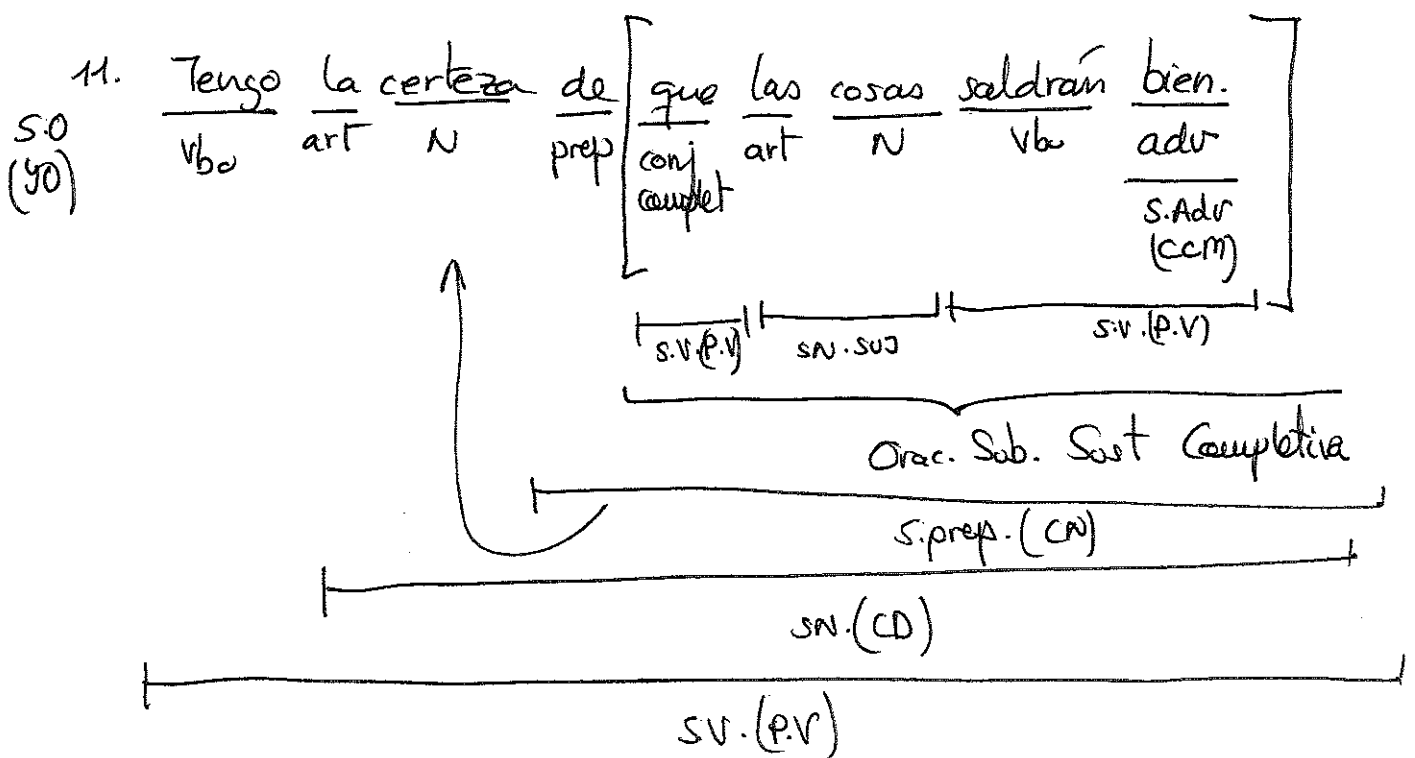 11. Tengo la certeza de [que las cosas saldrán bien.]
S.O
(YO)
Vbo art N prep conj art N Vbo adv
complet
S.Adv
(CCM)
S.V.(P.V) SN.SUJ S.V.(P.V)
Orac. Sub. Sust Completiva
S.prep.(CN)
SN.(CD)
SV.(P.V)